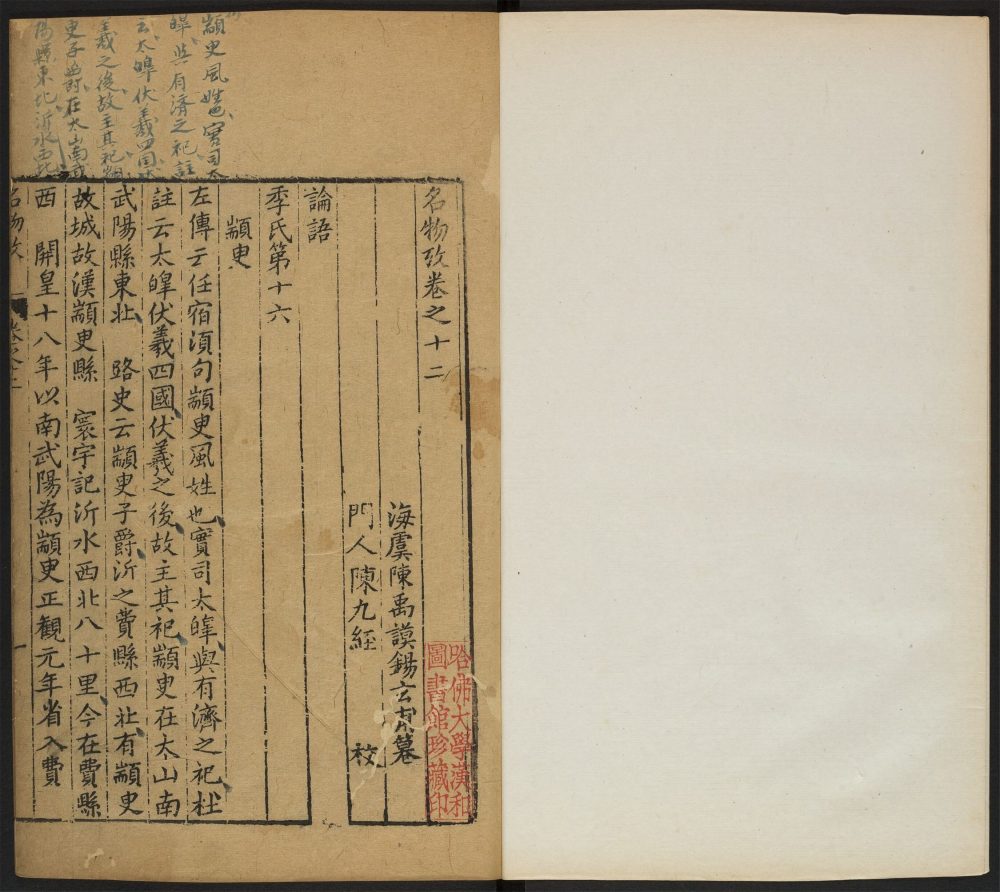 顓臾風姓也實司太
皞與有濟之祀註
云太皞伏羲四國伏
羲之後故主其祀顓
臾子爵在太山南武
陽縣東北沂水西北
名物攷卷之十二
海虞陳禹謨錫玄
門人陳九經 校
論語
季氏第十六
顓臾
左傳云任宿湏句顓臾風姓也實司太皞與有濟之祀杜
註云太皞伏羲四國伏羲之後故主其祀顓臾在太山南
武陽縣東北 路史云顓臾子爵沂之費縣西北有顓臾
故城故漢顓臾縣 寰宇記沂水西北八十里今在費縣
西 開皇十八年以南武陽為顓臾正觀元年省入費
名物攷 卷之十二 一
哈佛大學漢和
圖書館珍藏印